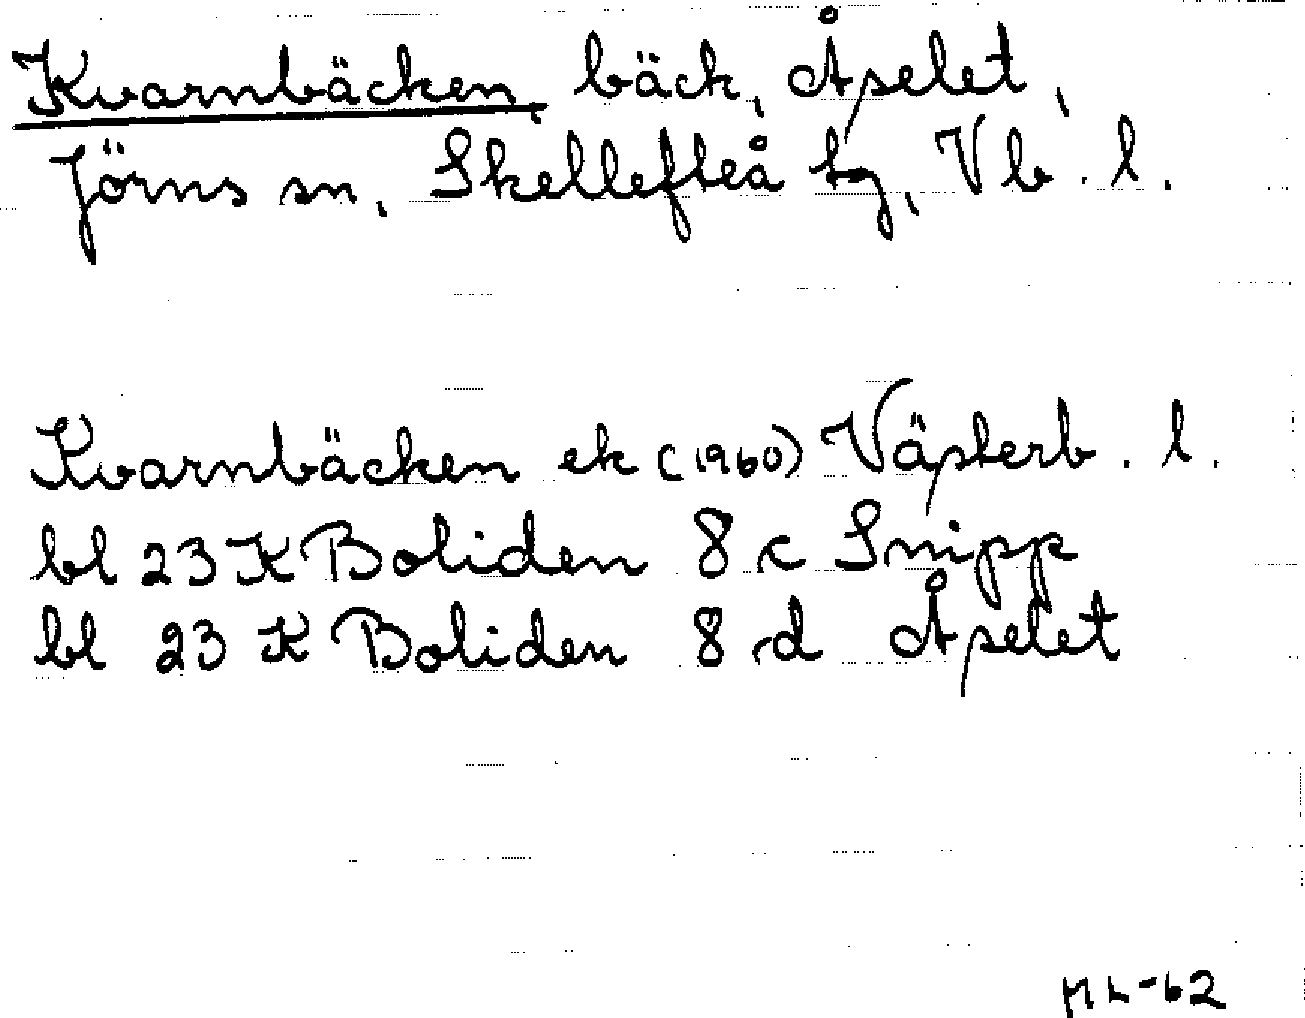 Kvarnbäcken, bäck, Åselet,
Jörns sn, Skellefteå tg, Vb. l.
Kvarnbäcken ek (1960) Västerb. l.
bl 23 K Boliden 8 c Snipp
bl 23 K Boliden 8 d Åselet
ML-62